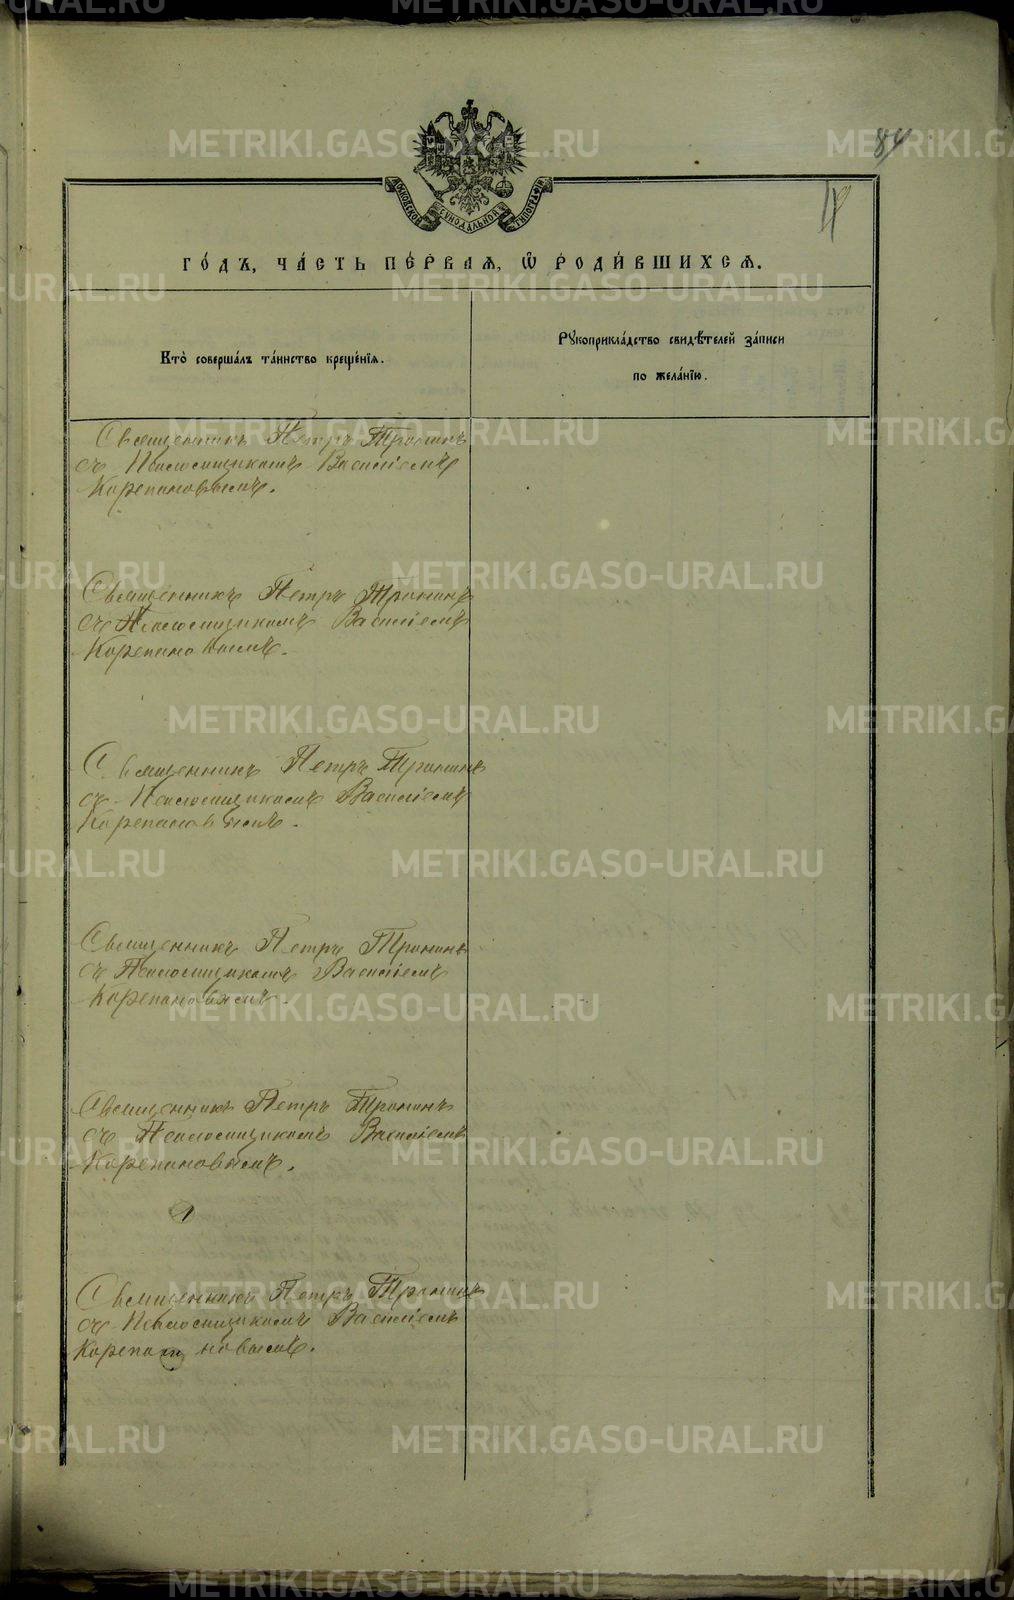 84
МОСКОВСКОЙ СѴНОДАЛЬНОЙ ТИПОГРАФІИ
го́дъ, ча́сть пе́рваѧ, ѡ҆ роди́вшихсѧ.
Кто̀ соверша́лъ та́инство креще́нїѧ.
Рꙋкоприкла́дство свидѣ́телей за́писи
по жела́нїю.
Священникъ Петръ Тронинъ
съ Псаломщикомъ Василіемъ
Корепановымъ.
Священникъ Петръ Тронинъ
съ Псаломщикомъ Василіемъ
Корепановымъ.
Священникъ Петръ Тронинъ
съ Псаломщикомъ Василіемъ
Корепановымъ.
Священникъ Петръ Тронинъ
съ Псаломщикомъ Василіемъ
Корепановымъ.
Священникъ Петръ Тронинъ
съ Псаломщикомъ Василіемъ
Корепановымъ.
Священникъ Петръ Тронинъ
съ Псаломщикомъ Василіемъ
Корепановымъ.
METRIKI.GASO-URAL.RU